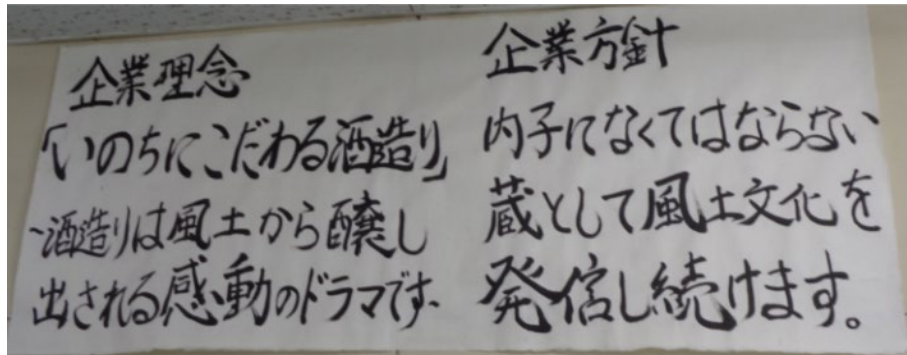 企業理念
「いのちにこだわる酒造り」
~酒造りは風土から醸し
出される感動のドラマです~
企業方針
内子になくてはならない
蔵として風土文化を
発信し続けます。